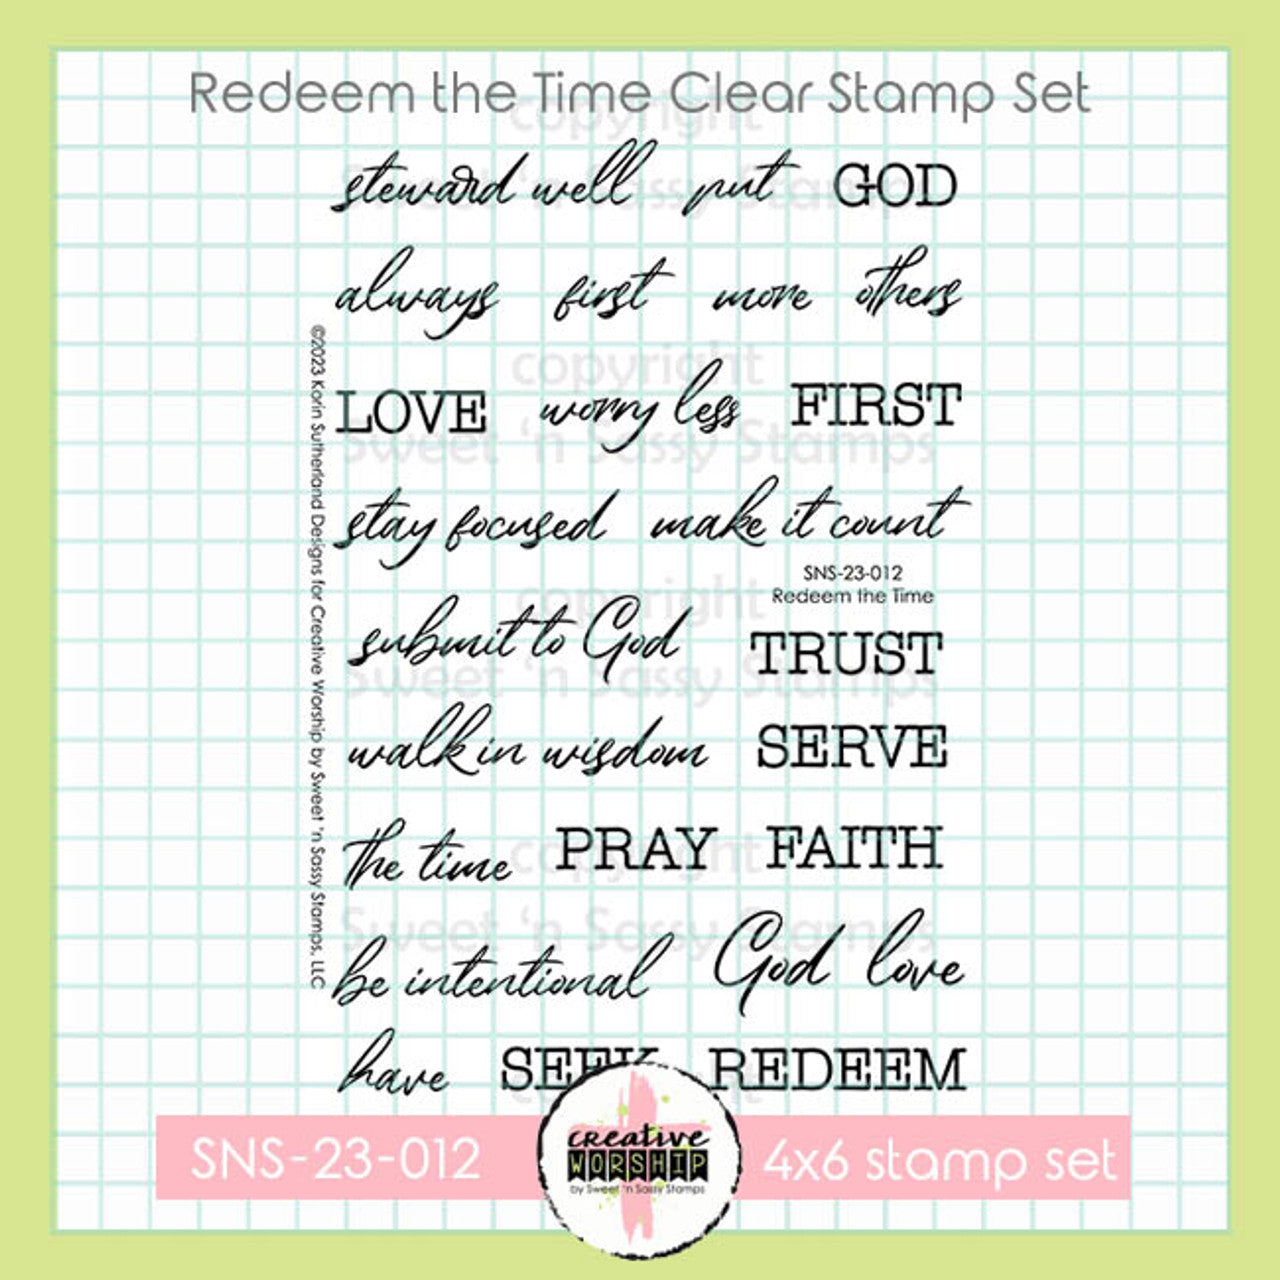 Redeem the Time Clear Stamp Set
copyright
Sweet 'n Sassy Stamps
steward well put GOD
always first more others
copyright
LOVE worry less FIRST
Sweet 'n Sassy Stamps
stay focused make it count
SNS-23-012
Redeem the Time
copyright
submit to God TRUST
Sweet 'n Sassy Stamps
walk in wisdom SERVE
the time PRAY FAITH
copyright
Sweet 'n Sassy Stamps
be intentional God love
have SEEK REDEEM
©2023 Korin Sutherland Designs for Creative Worship by Sweet 'n Sassy Stamps, LLC
SNS-23-012
creative
WORSHIP
by Sweet 'n Sassy Stamps
4x6 stamp set